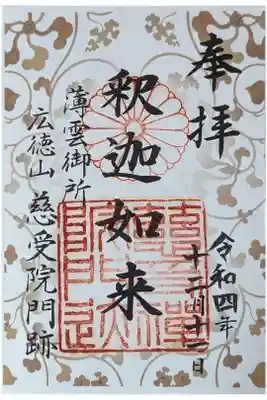 奉拝
令和四年
十二月十二日
釈迦如来
薄雲御所
広徳山 慈受院門跡